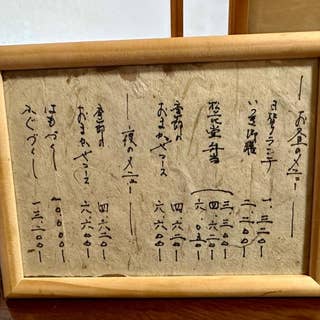 お昼のメニュー
日替ランチ 一、三二〇〇
いつき御膳 二、二〇〇〇
松花堂弁当 三、三〇〇〇
四、六二〇〇
六、〇五〇〇
季節のおまかせコース 四、六二〇〇
六、六〇〇〇
夜のメニュー
季節のおまかせコース 四、六二〇〇
六、六〇〇〇
はもづくし 一〇、〇〇〇〇
ふぐづくし 一三、二〇〇〇